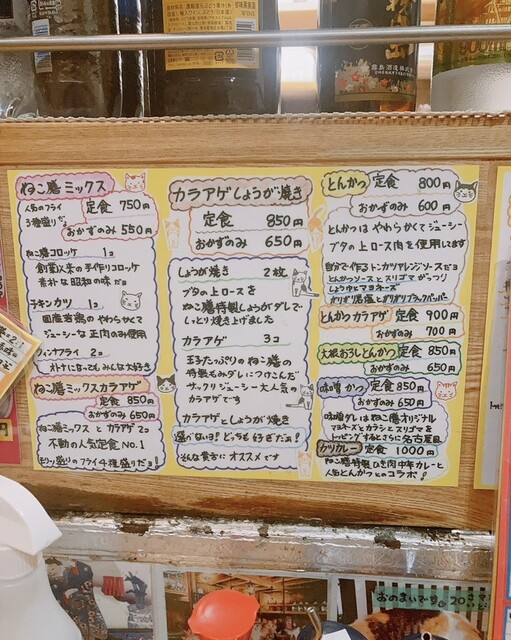 霧島酒造株式会社
ねこ膳ミックス
人気のフライ
3種盛りだよ
定食 750円
おかずのみ 550円
ねこ膳コロッケ 1コ
創業以来の手作りコロッケ
素朴な昭和の味だヨ
チキンカツ 1コ
国産若鶏のやわらかくて
ジューシーな正肉のみ使用
ウィンナフライ 2コ
オトナになってもみんな大好き
ねこ膳ミックスカラアゲ
定食 850円
おかずのみ 650円
ねこ膳ミックスとカラアゲ2コ
不動の人気定食 NO.1
モリッ盛りのフライ4種盛りだヨ!
カラアゲしょうが焼き
定食 850円
おかずのみ 650円
しょうが焼き 2枚
ブタの上ロースを
ねこ膳特製しょうがダレで
しっとり焼き上げました
カラアゲ 3コ
玉ネぎたっぷりのねこ膳の
特製もみダレにつけこんだ
サックリジューシー大人気の
カラアゲです
カラアゲとしょうが焼き
選べないヨ!どっちも好きだぁ!
そんな貴方にオススメです
とんかつ 定食 800円
おかずのみ 600円
とんかつはやわらかくてジューシー
ブタの上ロース肉を使用してます
自分で作るトンカツアレンジソースだヨ
とんかつソースとスリゴマがっつり
しょうゆとマヨネーズ
ガリガリ岩塩とガリガリブラックペッパー
とんかつカラアゲ 定食 900円
おかずのみ 700円
大根おろしとんかつ 定食 850円
おかずのみ 650円
味噌かつ 定食 850円
おかずのみ 650円
味噌ダレはねこ膳オリジナル
マヨネーズとカラシとスリゴマを
トッピングするとさらに名古屋風
カツカレー 定食 1000円
ねこ膳特製ひき肉中辛カレーと
人気とんかつとのコラボ!
おのまいマーサ。20コ